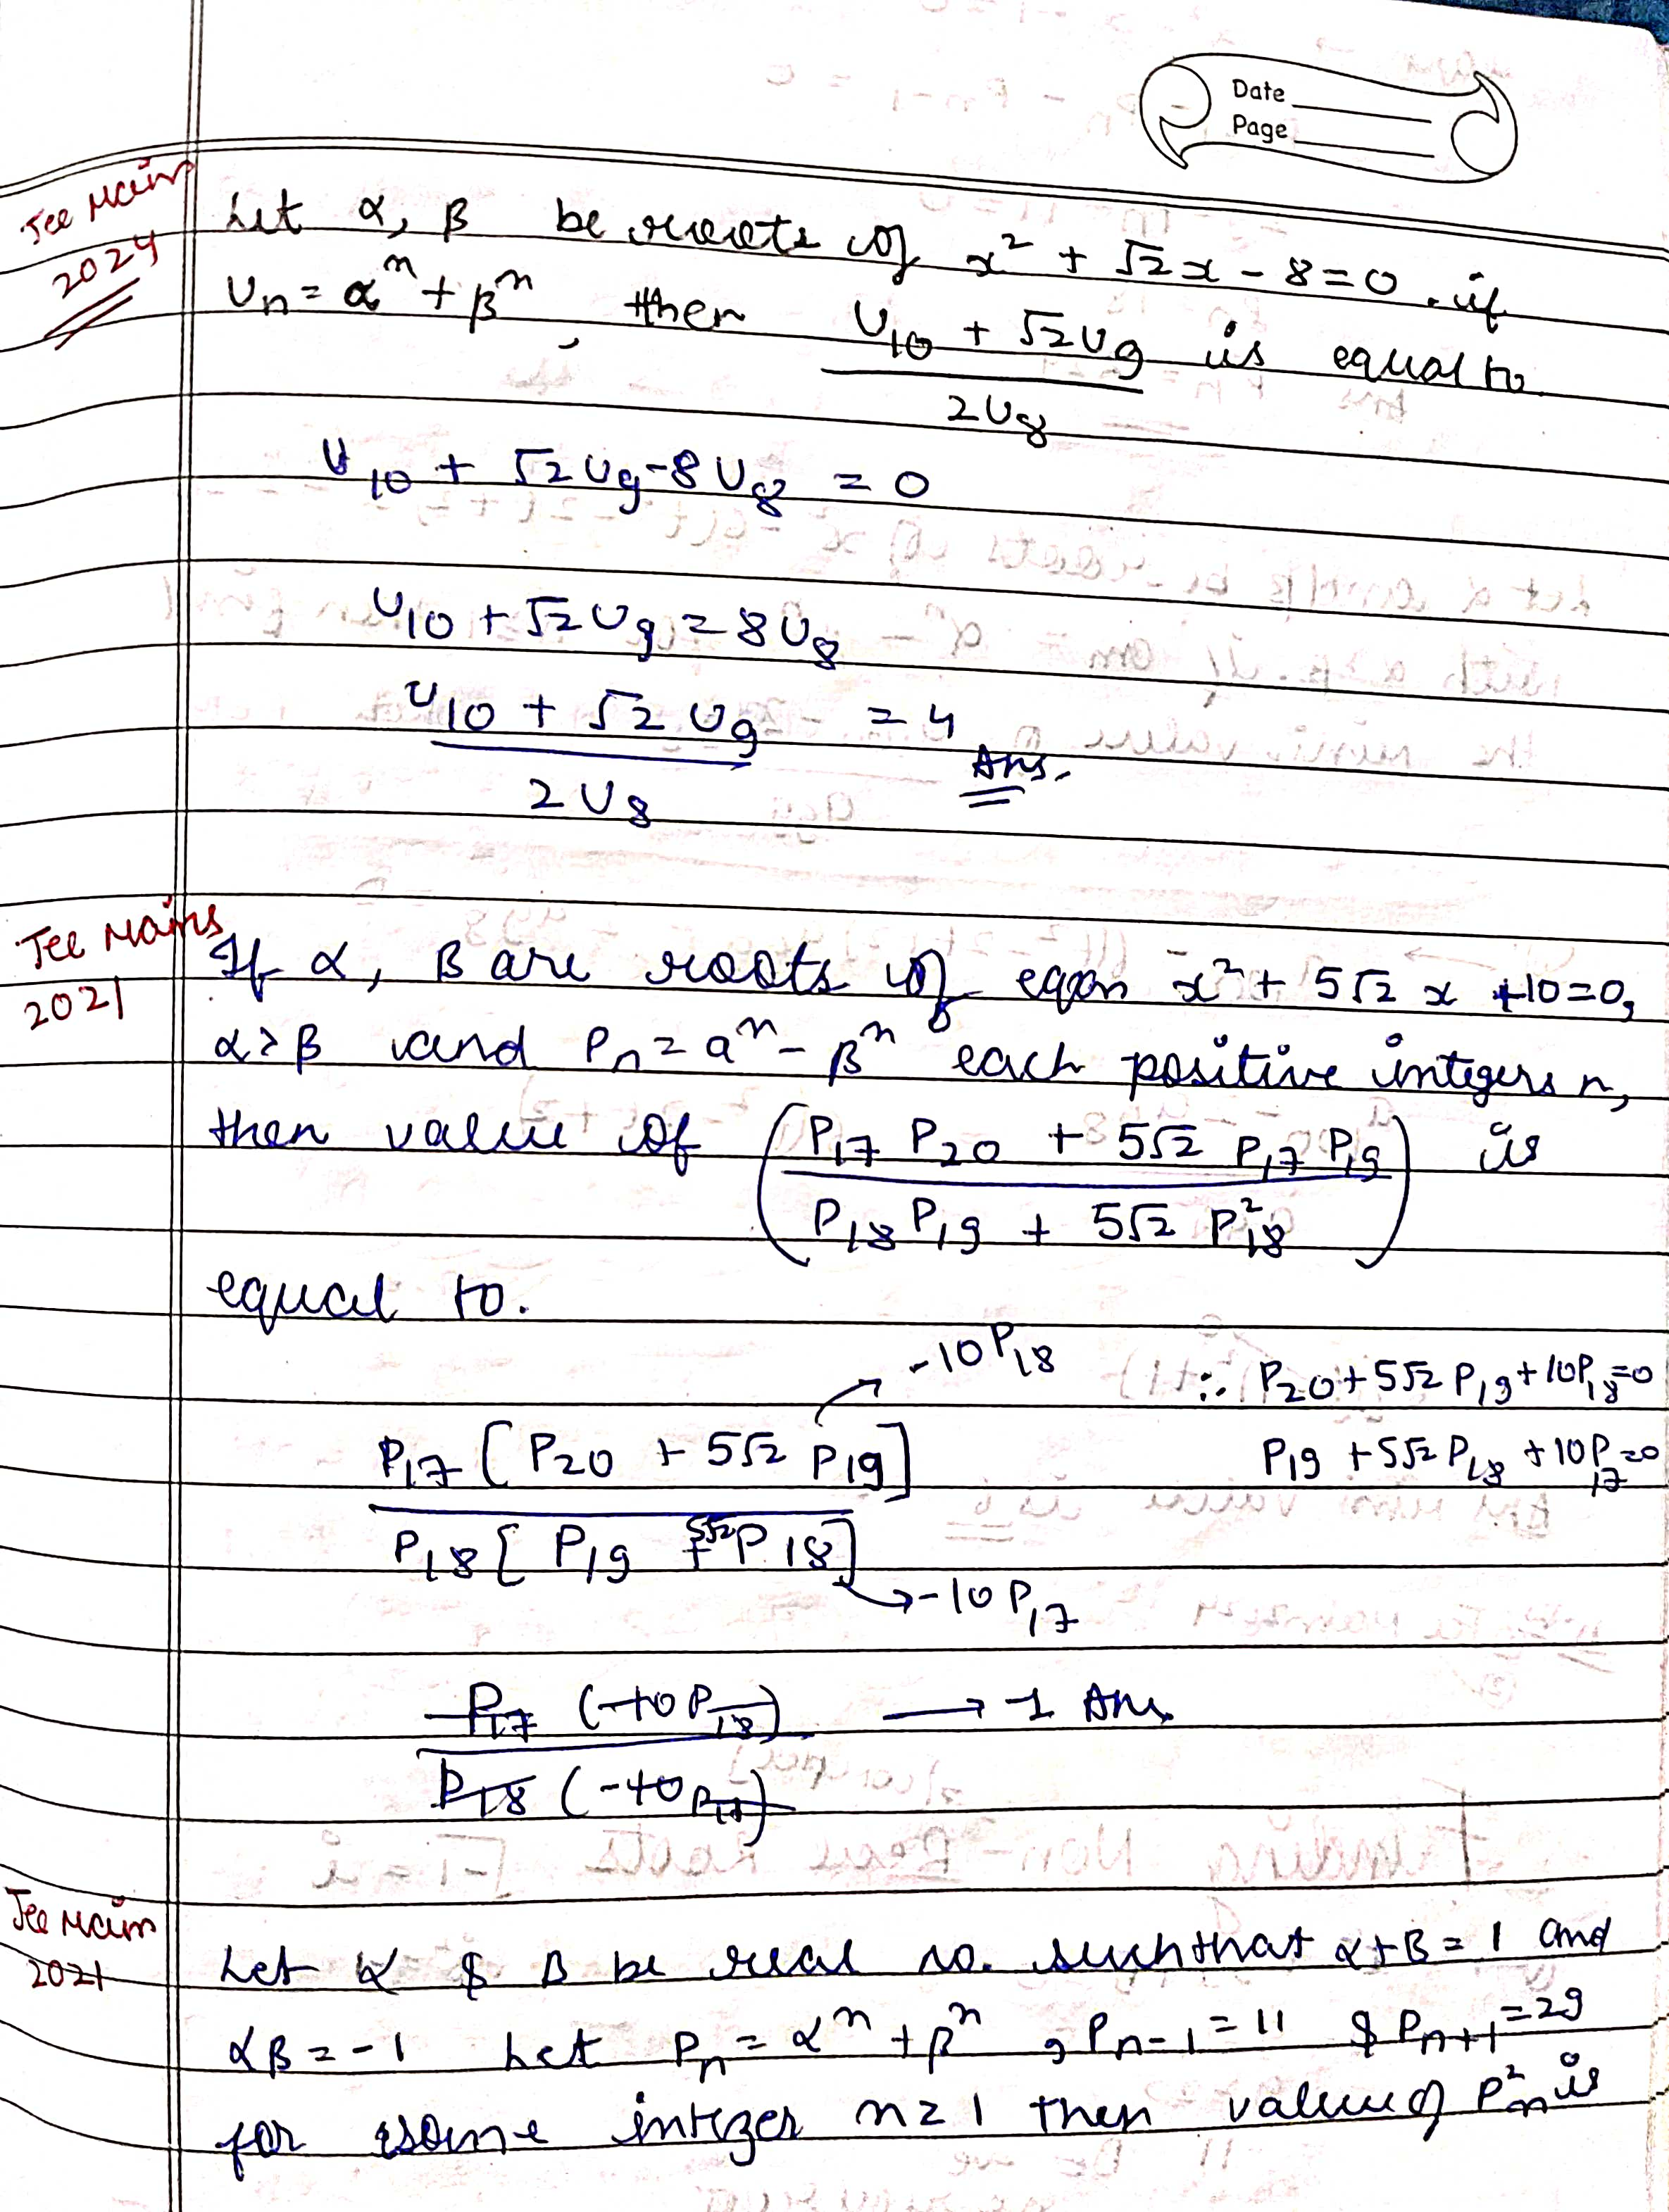 Date
Page
Jee Main
2024
Let α, β be roots of x² + √2x - 8 = 0. if
Un = αⁿ + βⁿ, then (U10 + √2U9)/2U8 is equal to
U10 + √2U9 - 8U8 = 0
U10 + √2U9 = 8U8
(U10 + √2U9)/2U8 = 4 Ans.
Jee Mains
2021
If α, β are roots of eqan x² + 5√2 x + 10 = 0,
α > β and Pn = aⁿ - βⁿ each positive integers n,
then value of ((P17 P20 + 5√2 P17 P19)/(P18 P19 + 5√2 P²18)) is
equal to.
-10P18
∴ P20 + 5√2 P19 + 10P18 = 0
P19 + 5√2 P18 + 10P17 = 0
P17 [P20 + 5√2 P19]
P18 [P19 + 5√2 P18]
→ -10 P17
P17 (-10P18)/P18 (-10P17) → 1 Ans.
Jee Main
2021
Let α & β be real no. such that α + β = 1 and
αβ = -1 Let Pn = αⁿ + βⁿ, Pn-1 = 11 & Pn+1 = 29
for some integer n ≥ 1 then value of P²n is